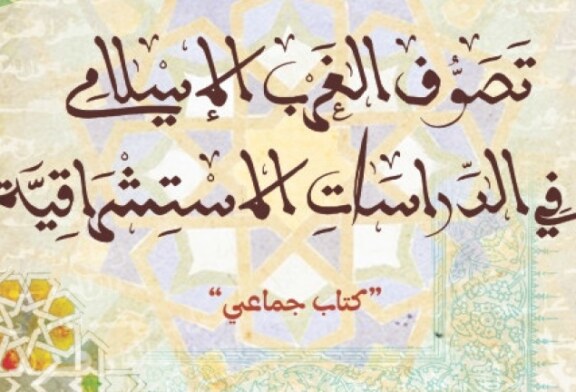 تَصَوُّف الغَرْب الإسْلامي
في الدِّراسَاتِ الاسْتِشْرَاقِيَّة
"كتاب جماعي"